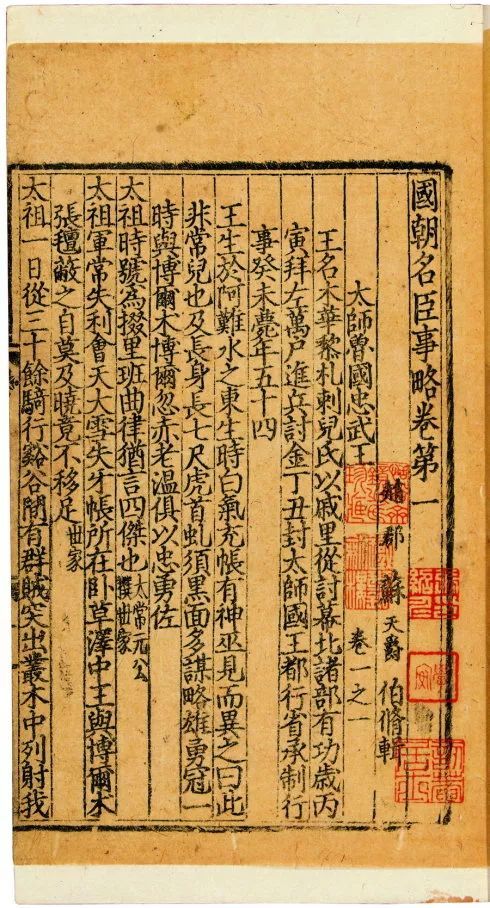 國朝名臣事略卷第一
趙郡蘇天爵伯脩輯
太師魯國忠武王 卷一之一
王名木華黎札剌兒氏以戚里從討幕北諸部有功歳丙
寅拜左萬戸進兵討金丁丑封太師國王都行省承制行
事癸未薨年五十四
王生於阿難水之東生時白氣充帳有神巫見而異之曰此
非常兒也及長身長七尺虎首虬須黑面多謀略雄勇冠一
時與博爾木博爾忽赤老温俱以忠勇佐
太祖時號為掇里班曲律猶言四傑也太常元公撰世家
太祖軍常失利會天大雪失牙帳所在卧草澤中王與博爾木
張氊蔽之自莫及曉竟不移足世家
太祖一日從三十餘騎行谿谷間有群賊突出叢木中列射我